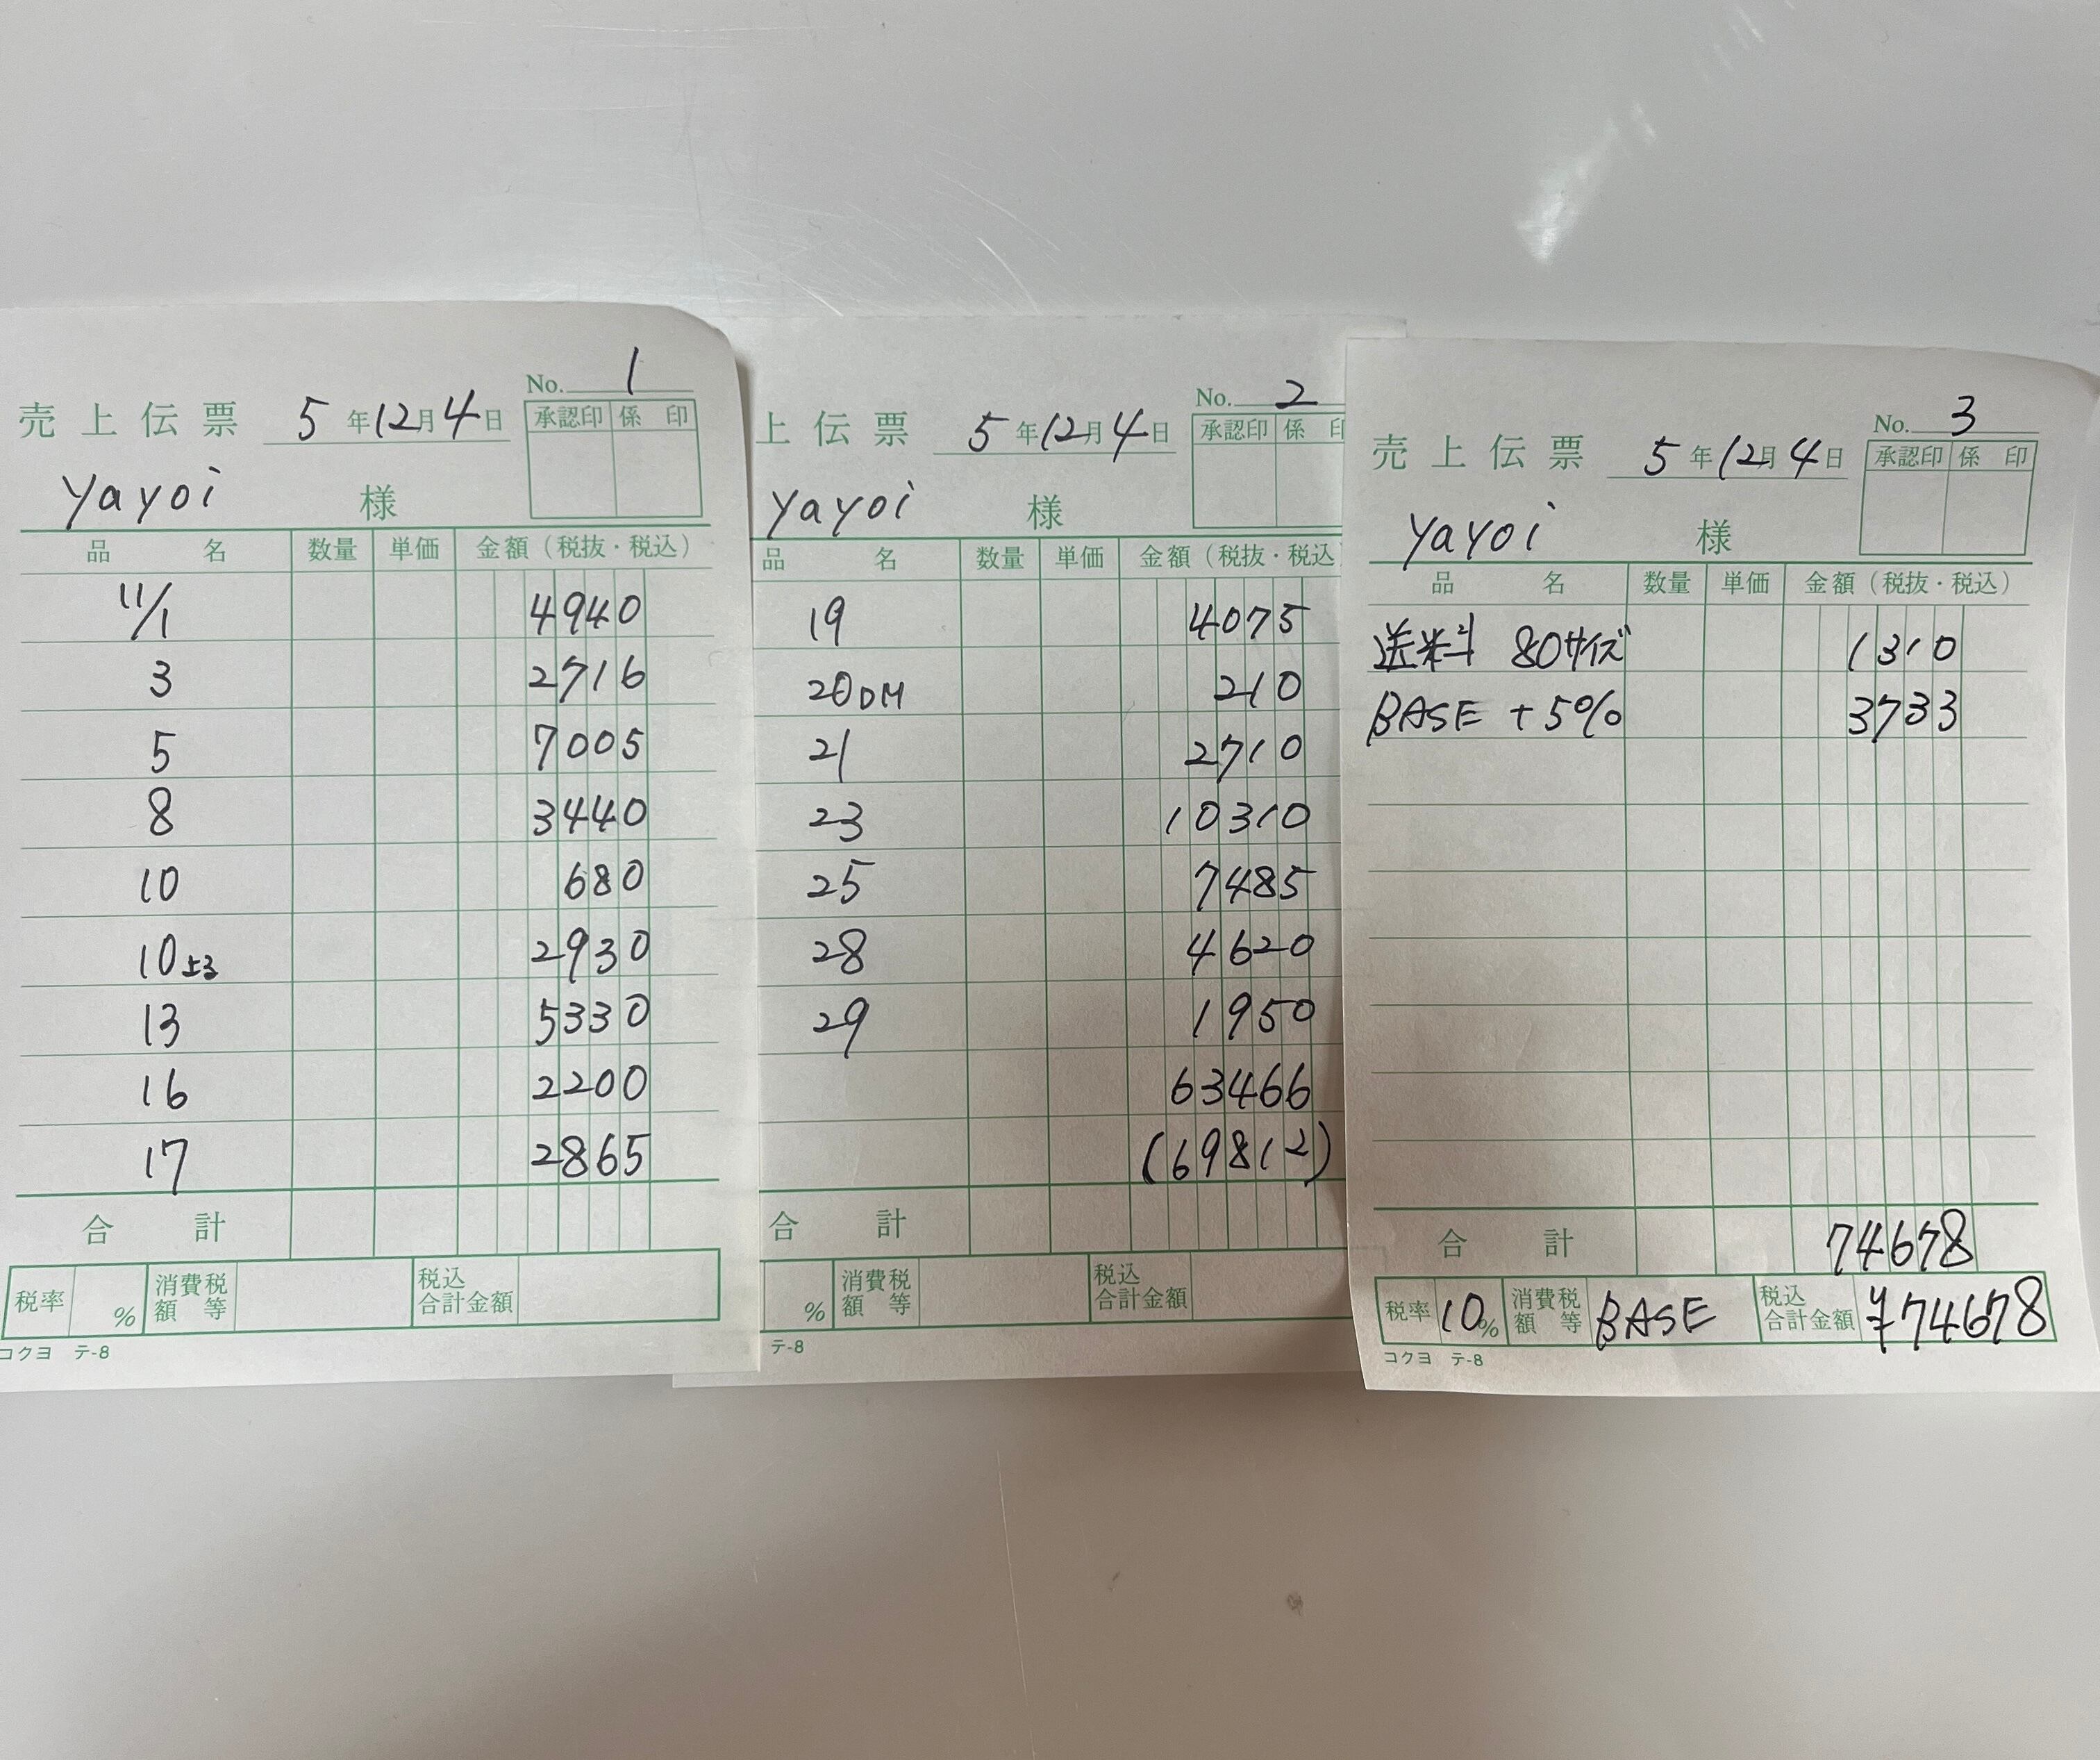 No. 1
売上伝票 5年12月4日
承認印 係印
yayoi 様
品名 数量 単価 金額（税抜・税込）
11/1 4940
3 2716
5 7005
8 3440
10 680
10上る 2930
13 5330
16 2200
17 2865
合計
税率 % 消費税額等 税込合計金額
コクヨ テ-8
No. 2
上伝票 5年12月4日
承認印 係印
yayoi 様
品名 数量 単価 金額（税抜・税込
19 4075
20DM 210
21 2710
23 10310
25 7485
28 4620
29 1950
63466
(69812)
合計
% 消費税額等 税込合計金額
テ-8
No. 3
売上伝票 5年12月4日
承認印 係印
yayoi 様
品名 数量 単価 金額（税抜・税込）
送料 80サイズ 1310
BASE +5% 3733
合計 74678
税率 10% 消費税額等 BASE 税込合計金額 ¥74678
コクヨ テ-8